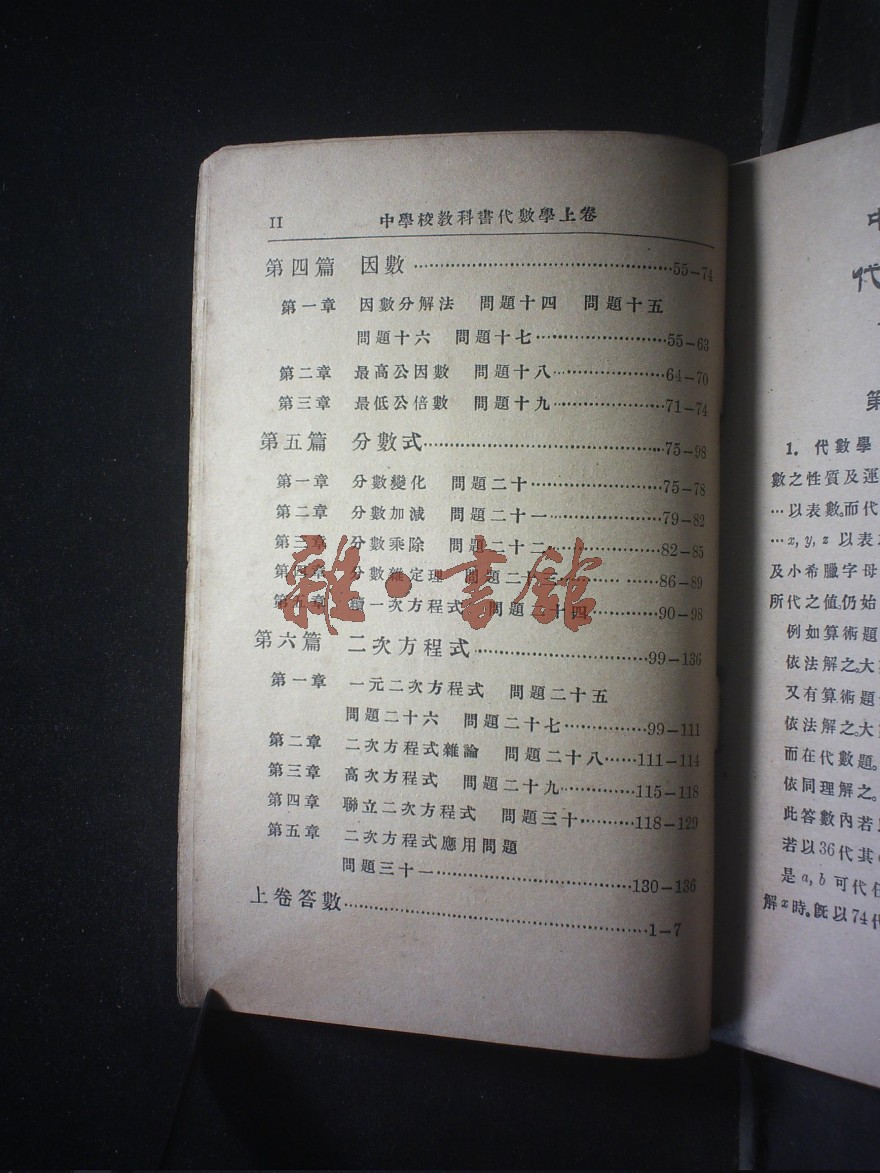 II 中學校教科書代數學上卷
第四篇 因數……………………………55—74
第一章 因數分解法 問題十四 問題十五
問題十六 問題十七……………55—63
第二章 最高公因數 問題十八……………64—70
第三章 最低公倍數 問題十九……………71—74
第五篇 分數式……………………………75—98
第一章 分數變化 問題二十……………75—78
第二章 分數加減 問題二十一……………79—82
第三章 分數乘除 問題二十二……………82—85
第四章 分數雜定理 問題二十三……………86—89
第五章 續一次方程式 問題二十四………90—98
第六篇 二次方程式……………………99—136
第一章 一元二次方程式 問題二十五
問題二十六 問題二十七…………99—111
第二章 二次方程式雜論 問題二十八……111—114
第三章 高次方程式 問題二十九…………115—118
第四章 聯立二次方程式 問題三十………118—129
第五章 二次方程式應用問題
問題三十一……………………130—136
上卷答數……………………………1—7
雜·書館
中
代
第
1. 代數學
數之性質及運
…以表數。而代
…x, y, z 以表
及小希臘字母
所代之值,仍始
例如算術題
依法解之。大
又有算術題
依法解之。大
而在代數題。
依同理解之。
此答數內若
若以36代其
是 a, b 可代任
解x時。既以74代